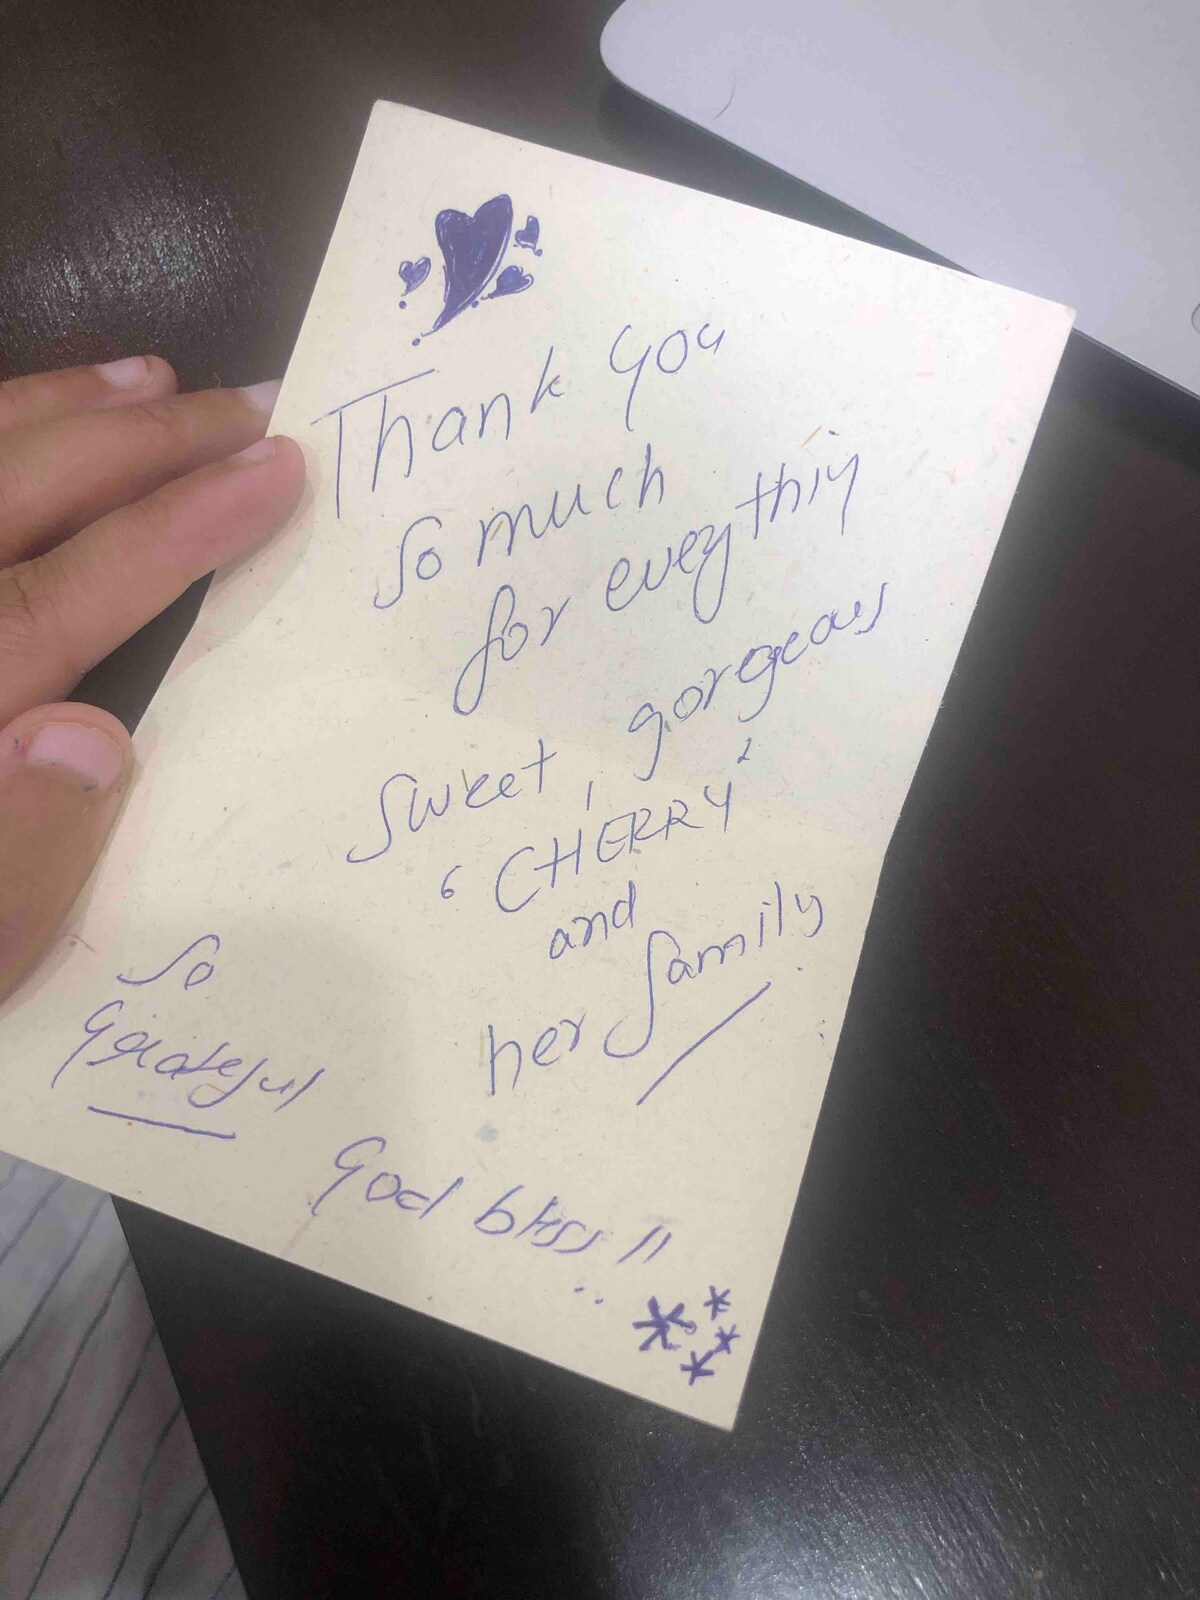 Thank you
so much
for eveything
sweet, gorgeous
"CHERRY"
and
her family
So
Grateful
God bless!!